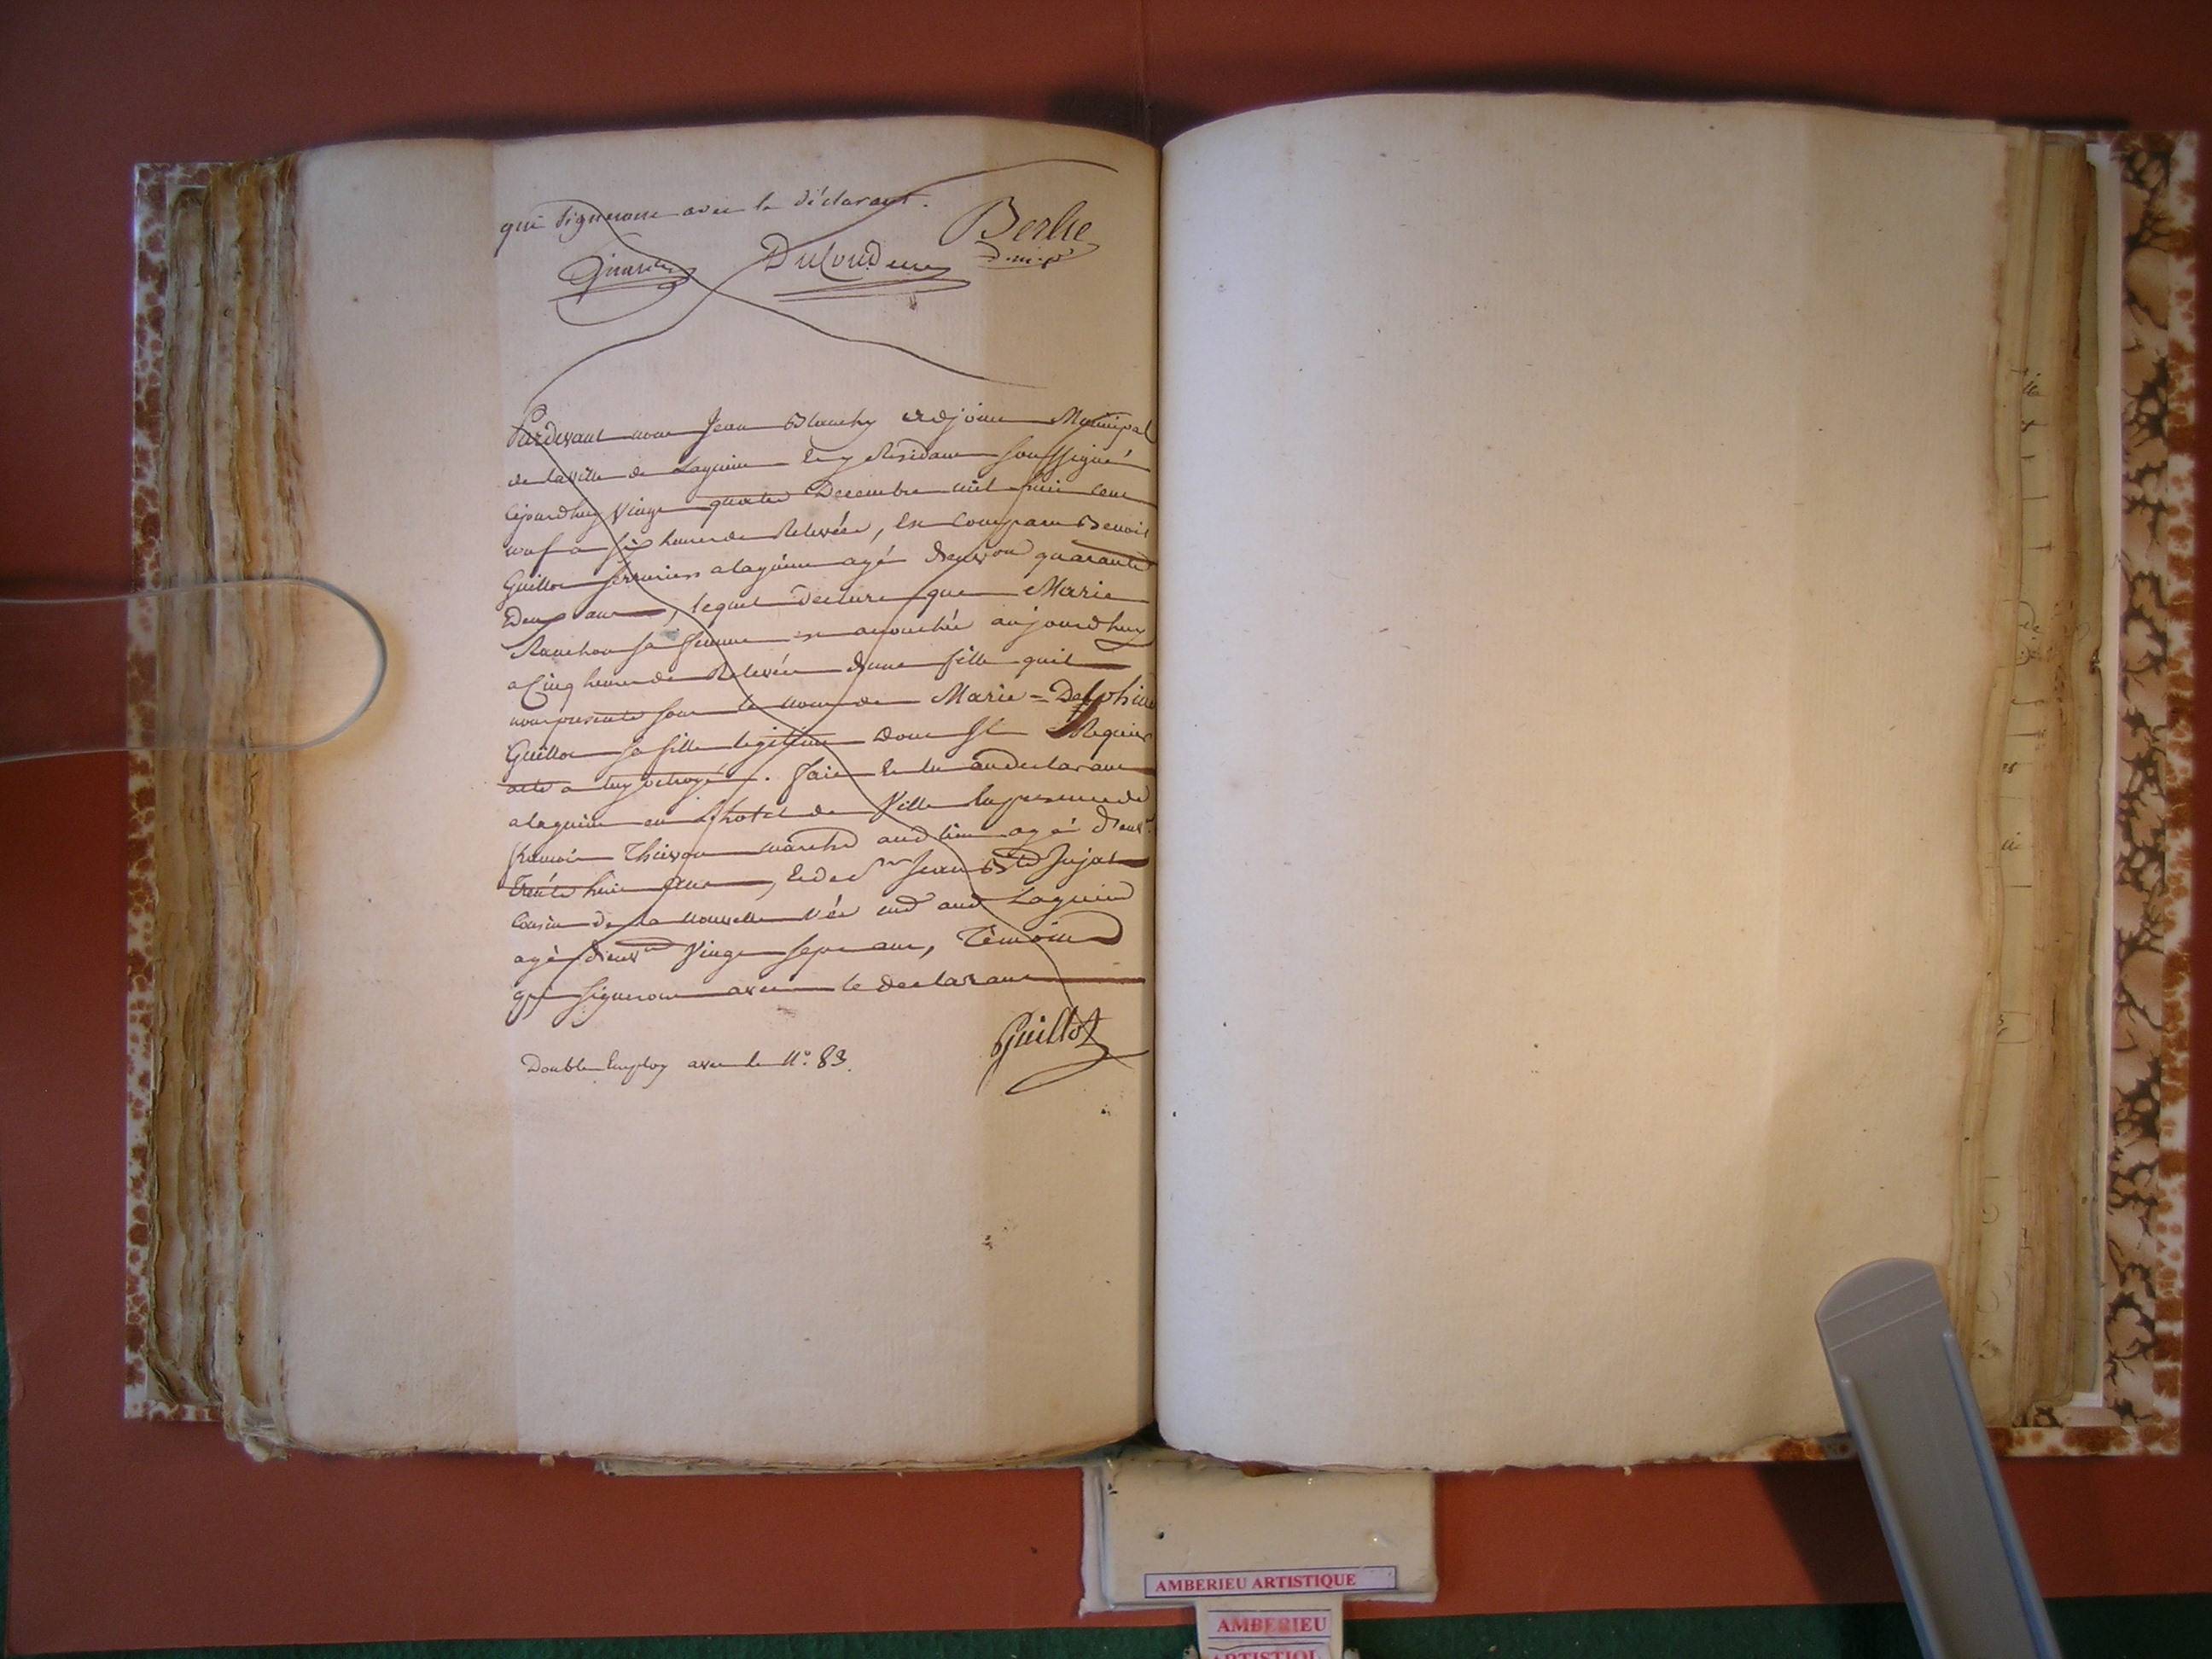 qui signeront avec le déclarant.
Berlie
Ducoudene
Pardevant nous Jean Blanchy adjoint Municipal
de la ville de Lagnieu et y Residant soussigné
cejourdhuy vingt quatre Decembre mil huit cent
neuf a six heures de Relevée, Est comparu Benoit
Guillot serrurier a lagnieu agé denvon quarante
deux ans, lequel declare que Marie
Ranchon sa femme est accouchée aujourdhuy
a Cinq heures de Relevée dune fille quil
nous presente sous le nom de Marie=Delphine
Guillot sa fille legitime Dont Il Requiert
acte a luy octroyé. fait et lu au declarant
a lagnieu en l'hotel de Ville En presence de
françois Thevon march'd aud lieu agé d'envn
trente huit ans, Et de Sr Jean Bte Jujat
Cousin de la nouvelle Née md aud Lagnieu
agé d'envn Vingt sept ans, Témoins
qui signeront avec le declarant
Guillot
Double Employ avec le No. 83.
AMBERIEU ARTISTIQUE
AMBERIEU